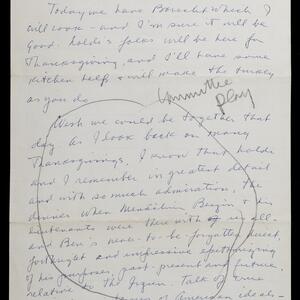 Today we have Borscht which I
will cook - and I'm sure it will be
Good. folks will be here for
Thanksgiving, and I'll have some
kitchen help, & will make the turkey
as you do.
Committee
Play
Wish we could be together that
day. As I look back on many
Thanksgivings, I know that
and I remember in greatest detail
and with so much admiration, the
dinner when Menachem Begin & his
lieutenants were there with us all -
and Ben's never-to-be-forgotten
forthright and impressive
of his purposes, past-present and future,
relative to the Irgun. Talk of
of American ideals -